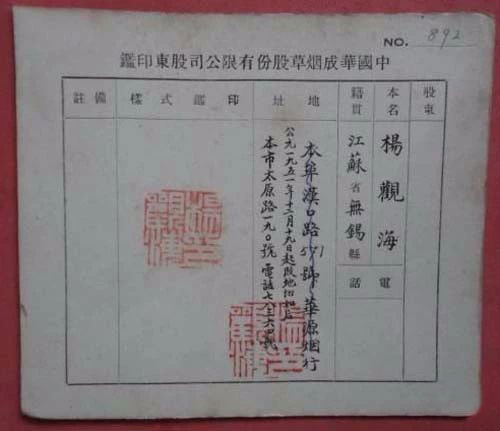 NO. 892
中國華成烟草股份有限公司股東印鑑
股東
本名
楊觀海
電話
籍貫
江蘇省無錫縣
地址
本埠漢口路571號華源烟行
公元一九五一年十二月十九日起改地址如后
本市太原路一九〇號 電話七八三六四號
印鑑式樣
備註